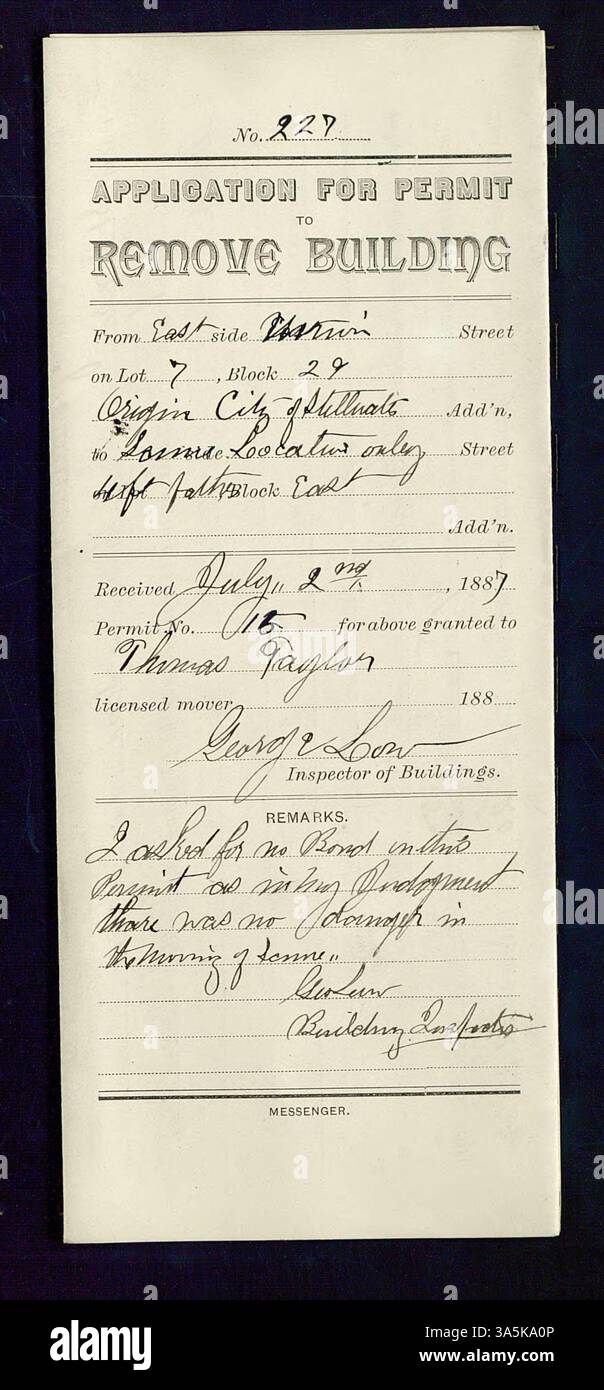 No. 227
APPLICATION FOR PERMIT
TO
REMOVE BUILDING
From East side Street
on Lot 7, Block 29
Origin City of Stillwater Add'n,
to Same Location only Street
4 ft farther Block East
Add'n.
Received July 2nd, 1887
Permit No. 15 for above granted to
Thomas Taylor
licensed mover 188
George Low
Inspector of Buildings.
REMARKS.
I asked for no Bond in this
Permit as in my Judgment
thare was no danger in
the moving of Same
Geo Low
Building Inspector
MESSENGER.
alamy
Image ID: 3A5KA0P
www.alamy.com